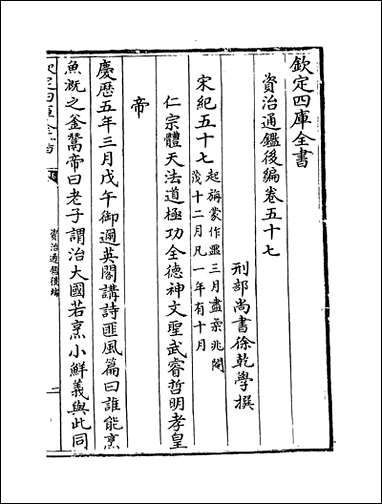 欽定四庫全書
資治通鑑後編卷五十七
刑部尚書徐乾學撰
宋紀五十七
起旃蒙作噩三月盡柔兆閹
茂十二月凡一年有十月
仁宗體天法道極功全德神文聖武睿哲明孝皇
帝
慶歷五年三月戊午御邇英閣講詩匪風篇曰誰能烹
魚溉之釡鬵帝曰老子謂治大國若烹小鮮義與此同
資治通鑑後編
一